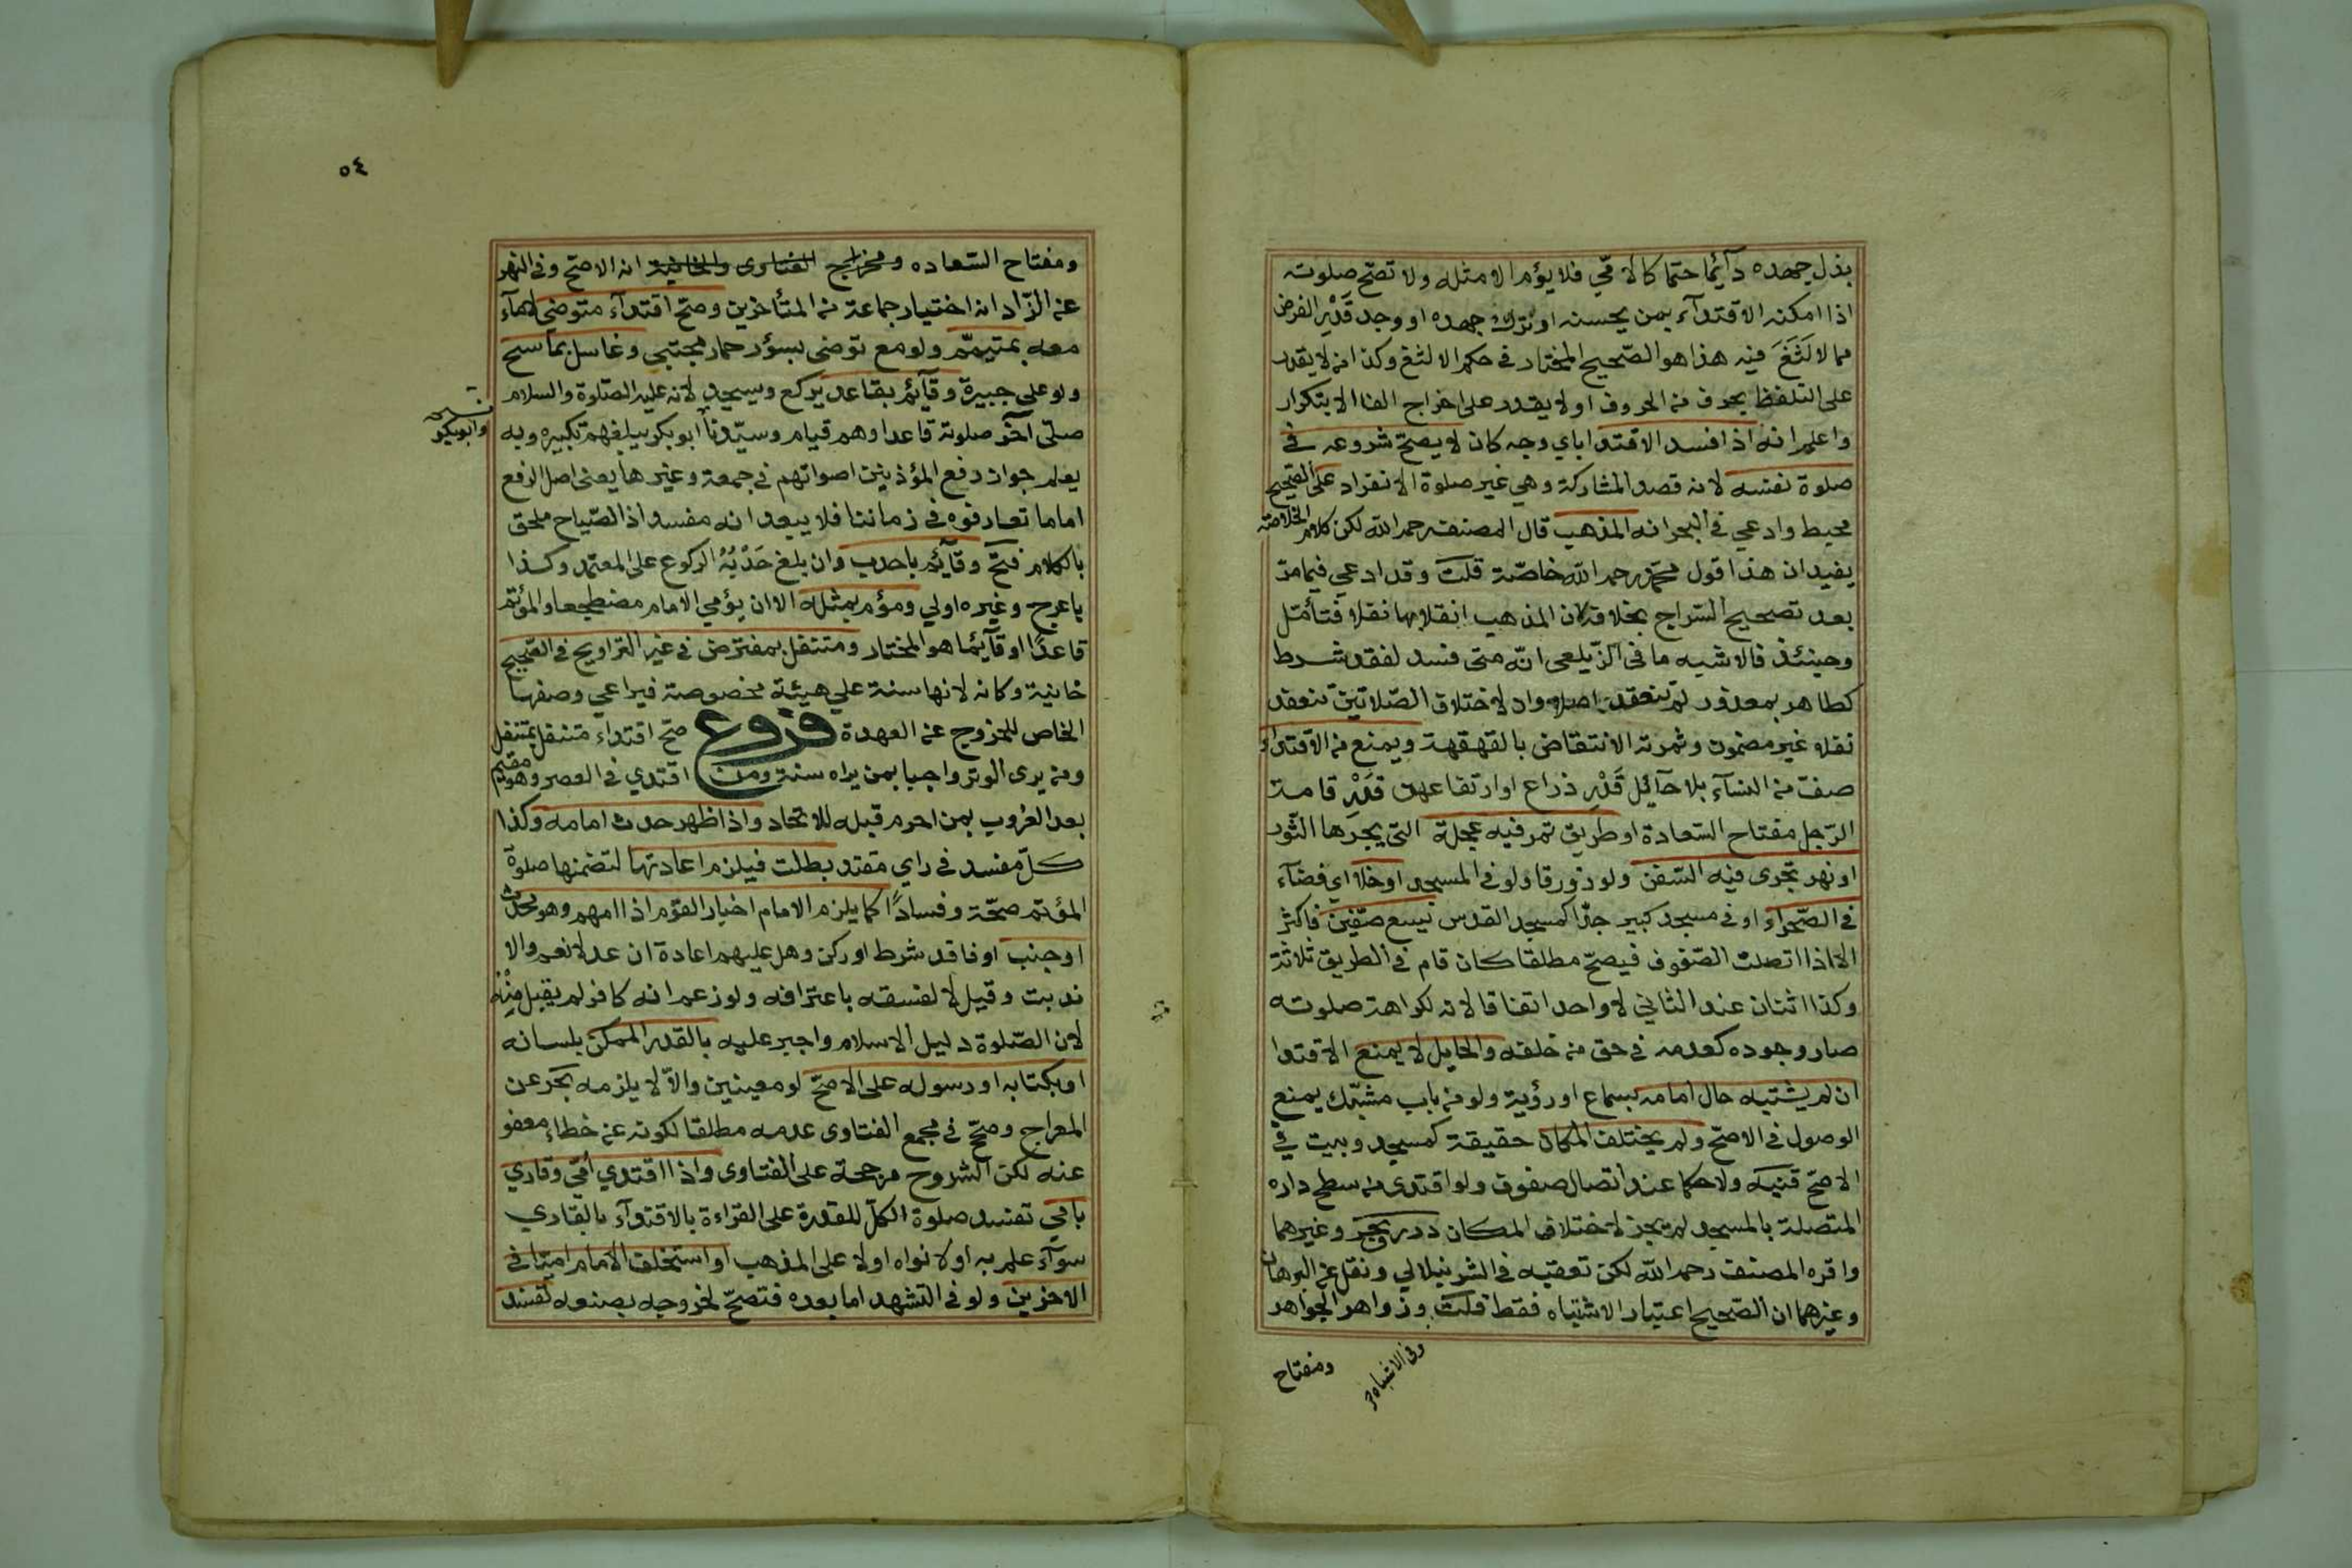 بذل جهده دآئما حتما كالامّي فلا يؤم الا مثله ولا تصّح صلوته
اذا امكنه الاقتدآء بمن يحسنه او ترك جهده او وجد قَدْر الفرض
مما لا لَثَغَ فيه هذا هو الصّحيح المختار في حكم الالثغ وكذا من لا يقدر
على التلفظ بحرف من الحروف او لا يقدر على اخراج الفا الا بتكرار
واعلم انه اذا فسد الاقتدا باي وجه كان لا يصحّ شروعه في
صلوة نفسه لانه قصد المشاركة وهي غير صلوة الانفراد على الصّحيح
محيط وادعي في البحر انه المذهب قال المصنف رحمه الله لكن كلام الخلاصة
يفيد ان هذا قول محمّد رحمه الله خاصّة قلت وقد ادعي فيما مرّ
بعد تصحيح السّراج بخلافه ان المذهب انقلابها نفلا فتأمّل
وحينئذ فالاشبه ما في الزّيلعى انّه متى فسد لفقد شرط
كطاهر بمعذور لم تنعقد اصلا وان لاختلاف الصّلاتين تنعقد
نفلا غير مضمون وثمرته الانتقاض بالقهقهة ويمنع من الاقتداء
صفّ من النسآء بلا حآئل قَدْر ذراع او ارتفاعهن قَدْر قامة
الرّجل مفتاح السّعادة او طريق تمر فيه عجلة التى يجرّها الثّور
او نهر تجرى فيه السّفن ولو زورقا ولو في المسجد او خلا اي فضآء
في الصّحراء او في مسجد كبير جدّا كمسجد القدس يسع صفّين فاكثر
الا اذا اتصلت الصّفوف فيصحّ مطلقا كان قام في الطريق ثلاثة
وكذا اثنان عند الثاني لا واحد اتفاقا لانه لكراهة صلوته
صار وجوده كعدمه في حق من خلفه والحايل لا يمنع الاقتدا
ان لم يشتبه حال امامه بسماع او رؤية ولو من باب مشبّك يمنع
الوصول في الاصّح ولم يختلف المكان حقيقة كمسجد وبيت في
الاصّح قنيه ولا حكما عند اتصال صفوف ولو اقتدى من سطح داره
المتصلة بالمسجد لم يجز لاختلاف المكان درر وبحر وغيرهما
واقره المصنف رحمه الله لكن تعقبه في الشرنبلالي ونقل عن البرهان
وغيرهما ان الصّحيح اعتبار الاشتباه فقط قلت وزواهر الجواهر
وفي الاشباه
ومفتاح
٥٤
ومفتاح السّعاده ومخراج الفتاوى والخانية انه الاصّح وفي النهر
عن الزّاد انه اختيار جماعة من المتأخرين وصحّ اقتدآء متوضى لا مآء
معه بمتيمّم ولو مع توضى بسؤر حمار مجتبى وغاسل بماسح
ولو على جبيرة وقآئم بقاعد يركع ويسجد لانه عليه الصّلوة والسلام
صلّى آخر صلوته قاعدا وهم قيام وسيّدنا أبو بكر يبلغهم تكبيره وبه
وابوبكر
يعلم جواز رفع المؤذنين اصواتهم في جمعة وغيرها يعنى اصل الرفع
اما ما تعارفوه في زماننا فلا يبعد انه مفسد اذ الصّياح ملحق
بالكلام فتح وقآئم باحدب وان بلغ حَدْبُهُ الركوع على المعتمد وكذا
باعرج وغيره اولي ومؤم بمثله الا ان يؤمي الامام مضطجعا والمؤتم
قاعدًا او قآئما هو المختار ومتنفل بمفترض في غير التراويح في الصّحيح
خانية وكانه لانها سنة علي هيئة مخصوصة فيراعي وصفها
الخاص للخروج عن العهدة فروع صحّ اقتداء متنفل بمتنفل
ومن يرى الوتر واجبا بمن يراه سنة ومن اقتدي في العصر وهو مقيم
بعد الغروب بمن احرم قبله للاتحاد واذا ظهر حدث امامه وكذا
كلّ مفسد في راي مقتد بطلت فيلزم اعادتها لتضمنها صلوة
المؤتم صحّة وفسادًا كما يلزم الامام اخبار القوم اذا امهم وهو محدث
او جنب او فاقد شرط او ركن وهل عليهم اعادة ان عدلا نعم والا
ندبت وقيل لا لفسقه باعترافه ولو زعم انه كافر لم يقبل مِنْه
لان الصّلوة دليل الاسلام واجبر عليه بالقدر الممكن بلسانه
او بكتابه او رسوله على الاصحّ لو معينين والاّ لا يلزمه بحر عن
المعراج وصحّ في مجمع الفتاوى عدمه مطلقا لكونه عن خطاء معفو
عنه لكن الشروح مرجحة على الفتاوى واذا اقتدي أمّي وقاري
بامّي تفسد صلوة الكلّ للقدرة على القراءة بالاقتدآء بالقاري
سوآء علم به او لا نواه او لا على المذهب او استخلف الامام اميّا في
الاخرين ولو في التشهد اما بعده فتصحّ لخروجه بصنعه تفسد